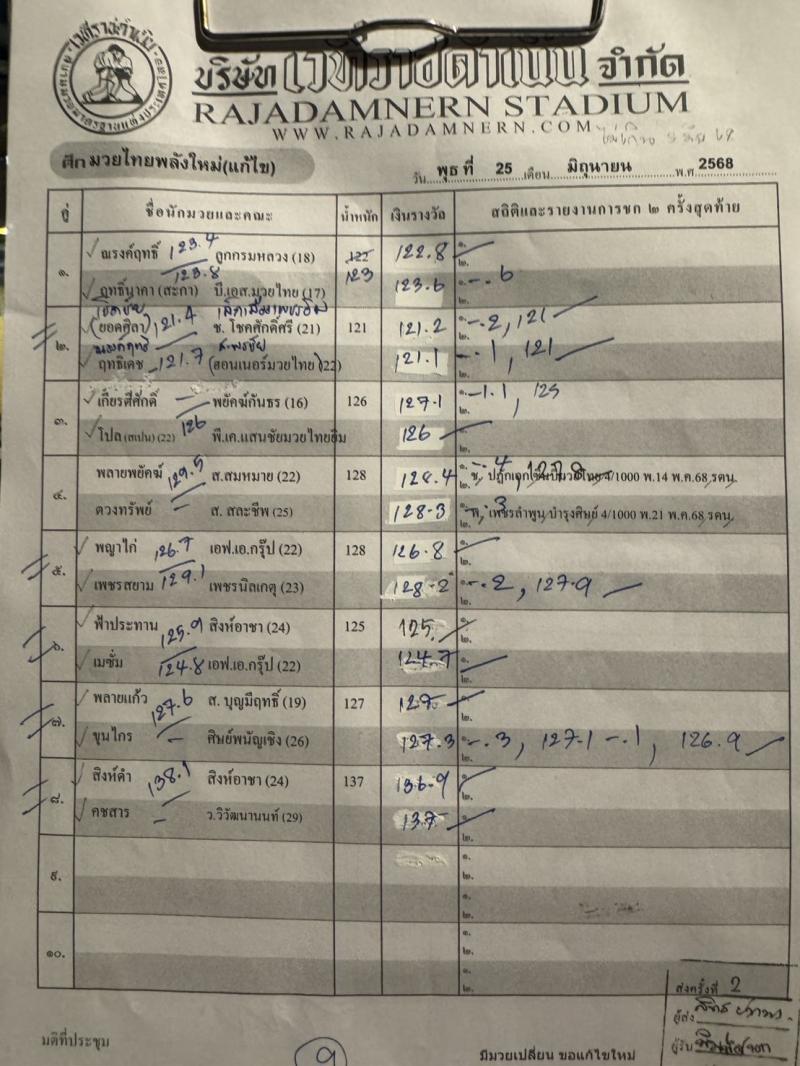 บริษัท เวทีราชดำเนิน จำกัด
RAJADAMNERN STADIUM
WWW.RAJADAMNERN.COM
ศึก มวยไทยพลังใหม่(แก้ไข)
วัน พุธ ที่ 25 เดือน มิถุนายน พ.ศ. 2568
คู่ ชื่อนักมวยและคณะ น้ำหนัก เงินรางวัล สถิติและรายงานการชก ๒ ครั้งสุดท้าย
๑.
ณรงค์ฤทธิ์ 123.4 ลูกกรมหลวง (18) 122 122.8 ๑.
๒.
123
ฤทธิ์นาคา (สะกา) 123.8 บี.เอส.มวยไทย (17) 123.6 ๑. -.6
๒.
๒.
(ยอดศิลา) 121.4 ช. โชคศักดิ์ศรี (21) 121 121.2 ๑. -.2, 121
๒.
ณรงค์ฤทธิ์
ฤทธิเดช 121.7 (สอนเนอร์มวยไทย) (22) 121.1 ๑. -.1, 121
๒.
๓.
เกียรติศักดิ์ - พยัคฆ์กันธร (16) 126 127.1 ๑. -1.1, 125
๒.
โปล (สเปน) (22) 126 พี.เค.แสนชัยมวยไทยยิม 126 ๑.
๒.
๔.
พลายพยัคฆ์ 129.5 ส.สมหมาย (22) 128 128.4 4/1000 พ.14 พ.ค.68 รตน.
ดวงทรัพย์ - ส. สละชีพ (25) 128.3 เพชรลำพูน บำรุงศิษย์ 4/1000 พ.21 พ.ค.68 รตน.
๕.
พญาไก่ 126.7 เอฟ.เอ.กรุ๊ป (22) 128 126.8 ๑.
๒.
เพชรสยาม 129.1 เพชรนิลเกตุ (23) 128.2 ๑. -.2, 127.9
๒.
๖.
ฟ้าประทาน 125.9 สิงห์อาชา (24) 125 125. ๑.
๒.
เมซั่ม 124.8 เอฟ.เอ.กรุ๊ป (22) 124.7 ๑.
๒.
๗.
พลายแก้ว 127.6 ส. บุญมีฤทธิ์ (19) 127 127 ๑.
๒.
ขุนไกร - ศิษย์พนัญเชิง (26) 127.3 ๑. -.3, 127.1 -.1, 126.9
๒.
๘.
สิงห์ดำ 138.1 สิงห์อาชา (24) 137 136.9 ๑.
๒.
คชสาร - ว.วิวัฒนานนท์ (29) 137 ๑.
๒.
๙.
๑.
๒.
๑.
๒.
๑๐.
๑.
๒.
๑.
๒.
ส่งครั้งที่ 2
ผู้ส่ง
ผู้รับ
มติที่ประชุม
9
มีมวยเปลี่ยน ขอแก้ไขใหม่